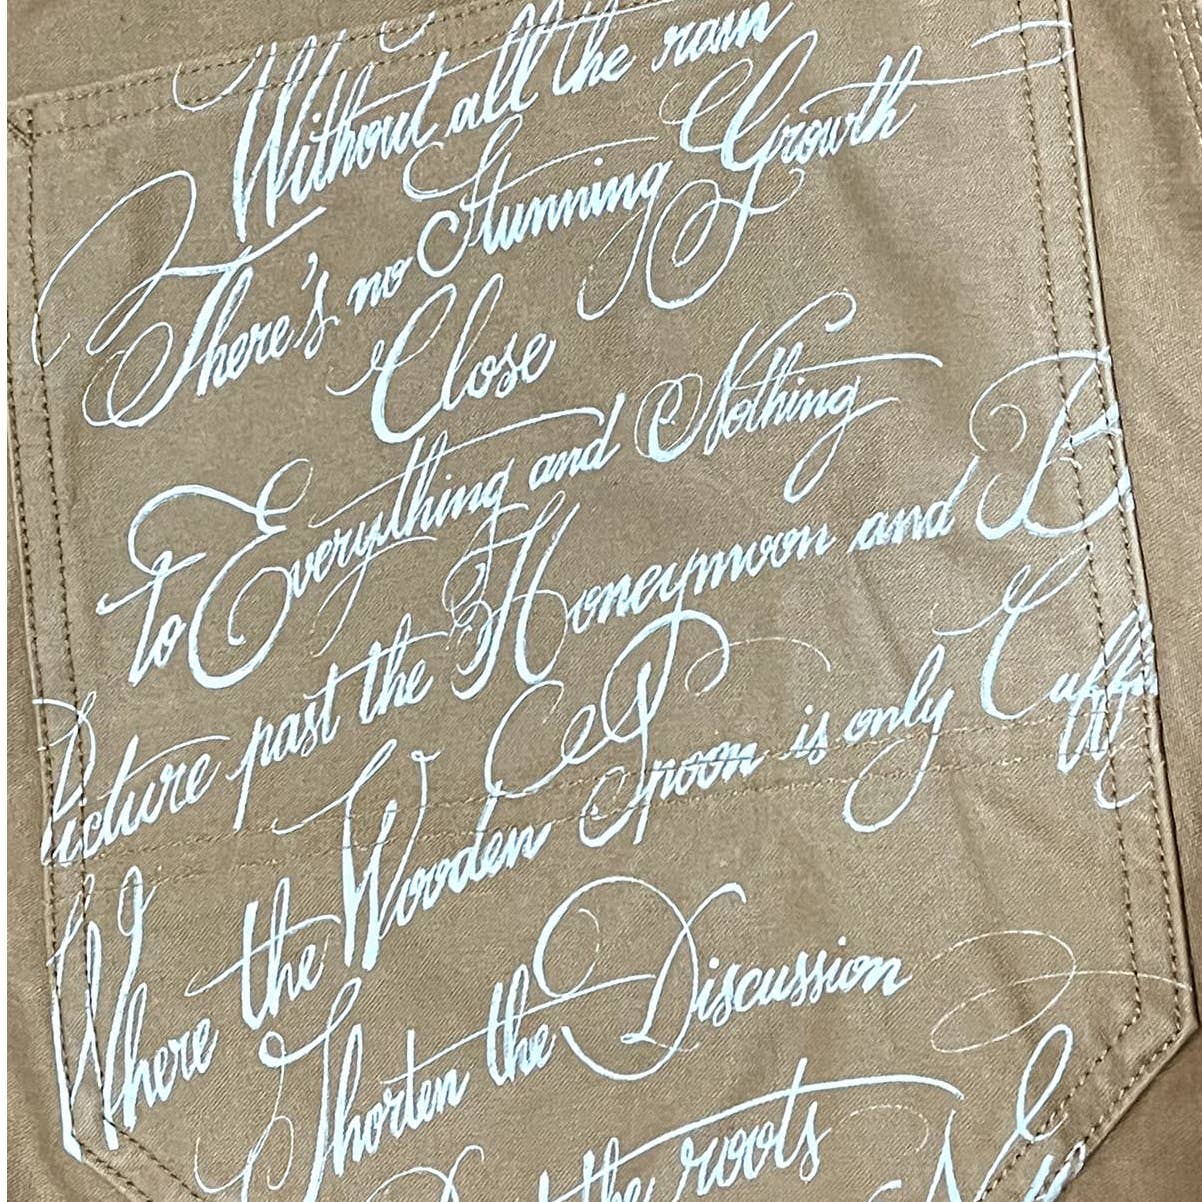 Without all the rain
There's no Stunning Growth
Close
to Everything and Nothing
Picture past the Honeymoon and
Where the Wooden Spoon is only
Shorten the Discussion
the roots